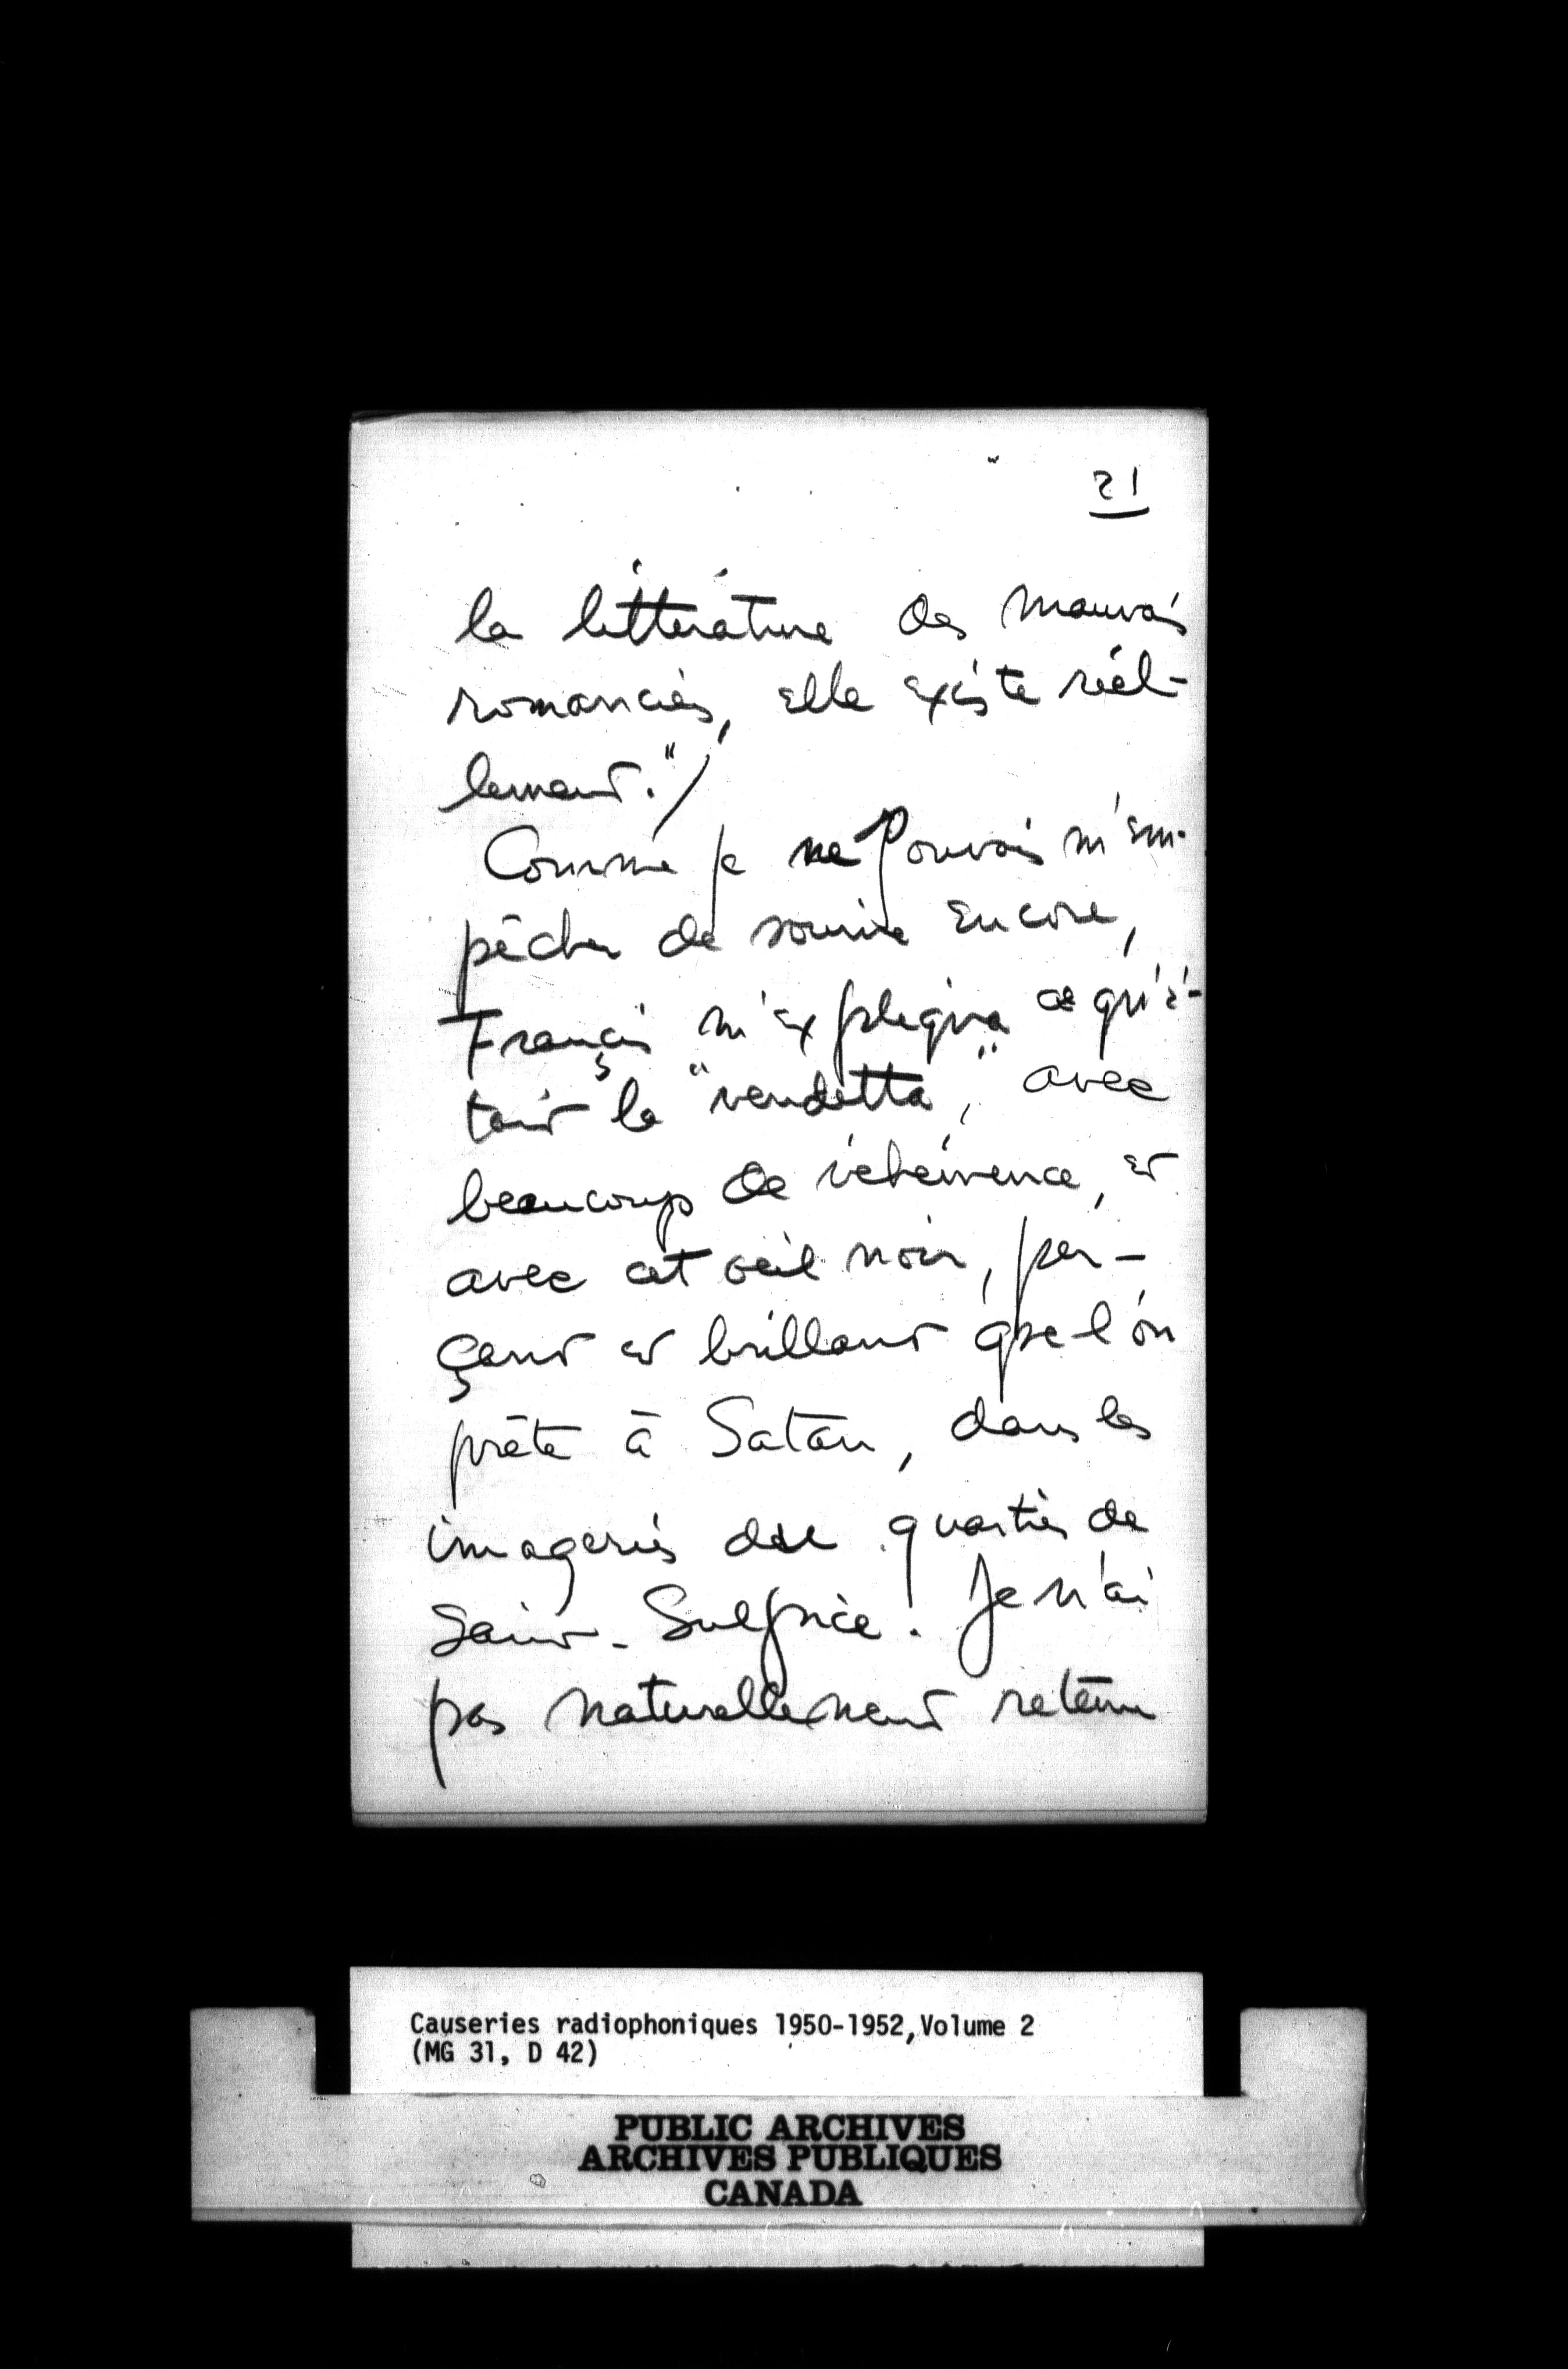 21
la littérature des mauvais
romanciers, elle existe réel-
lement."/
Comme je ne pouvais m'em-
pêcher de sourire encore,
François m'expliqua ce qu'é-
tait la "vendetta", avec
beaucoup de véhémence, et
avec cet oeil noir, per-
çant et brillant que l'on
prête à Satan, dans les
imageries du quartier de
Saint-Sulpice. Je n'ai
pas naturellement retenu
Causeries radiophoniques 1950-1952, Volume 2
(MG 31, D 42)
PUBLIC ARCHIVES
ARCHIVES PUBLIQUES
CANADA